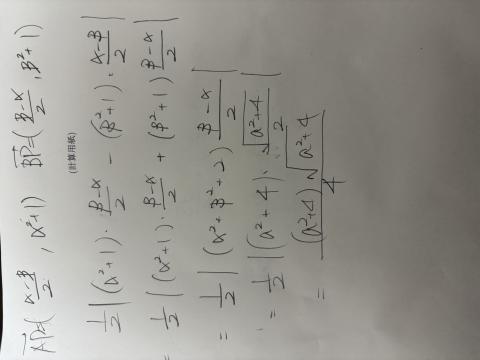 AP=(α-β/2, α²+1) BP=(β-α/2, β²+1)
(計算用紙)
1/2|(α²+1)·β-α/2 - (β²+1)·α-β/2|
= 1/2|(α²+1)·β-α/2 + (β²+1)β-α/2|
= 1/2|(α²+β²+2)β-α/2|
= 1/2|(a²+4)·√a²+4/2|
= (a²+4)√a²+4/4